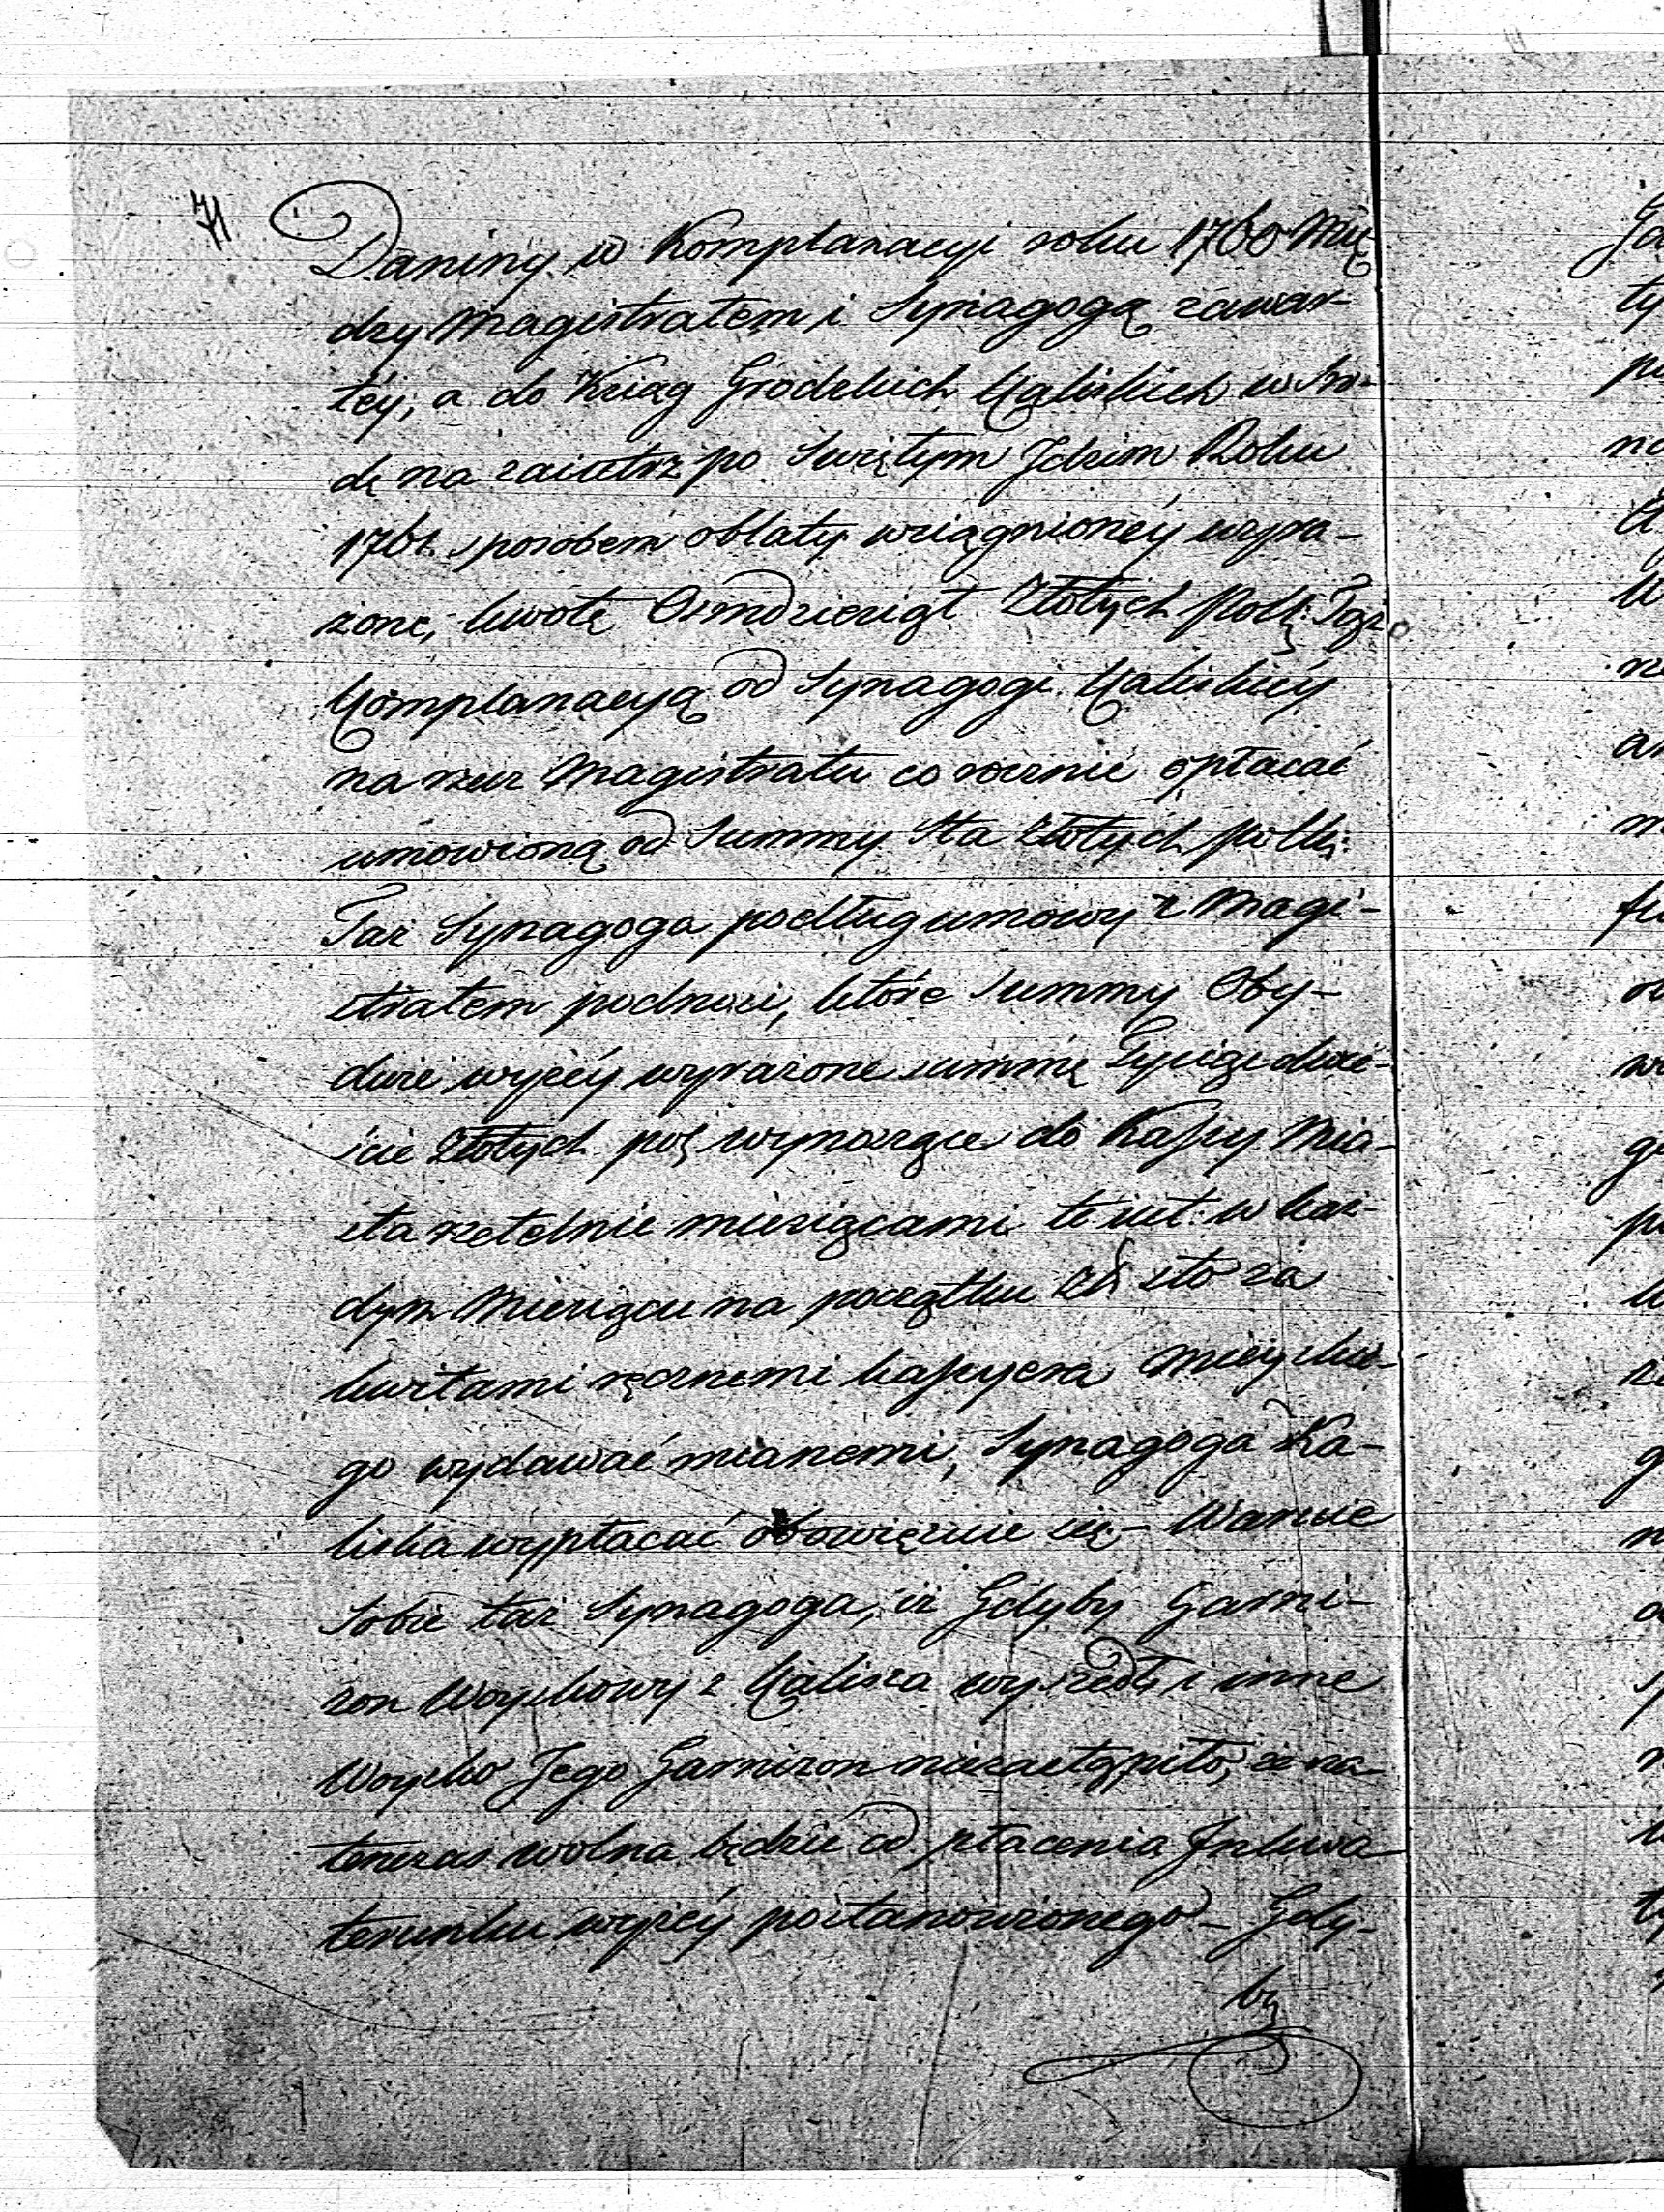 71. Daniny w Komplanacyi roku 1760 Mię-
dzy Magistratem i Synagogą zawar-
téy, a do Xiąg Grodzkich Kaliskich w Śro-
dę na zaiutrz po Swiętym Jdzim Roku
1761. sposobem oblaty wciągnionéy wyra-
żone, kwotę Osmdziesiąt Złotych Polk: Tąż
Komplanacyą od Synagogi Kaliskiéy
na rzecz Magistratu co rocznie opłacać
umowioną od Summy Sta Złotych polk:
Taż Synagoga podług umowy z Magi-
stratem podnosi, które Summy Oby-
dwie wyżéy wyrażone summę Tysiąc dwie-
ście Złotych pol: wynoszące do Kassy Mia-
sta rzetelnie miesiącami to iest: w każ-
dym Miesiącu na początku Zł: sto za
kwitami ręcznemi kassyera Mieysko-
go wydawać mianemi, Synagoga Ka-
liska wypłacać obowięzuie się – Waruie
Sobie taż Synagoga, iż Gdyby Garni-
zon Woyskowy z Kalisza wyszedł i inne
Woysko Jego Garnizon niezastąpiło, że na-
tenczas wolna będzie od płacenia Jnkwa-
terunku wyżéy postanowionego – Gdy-
by